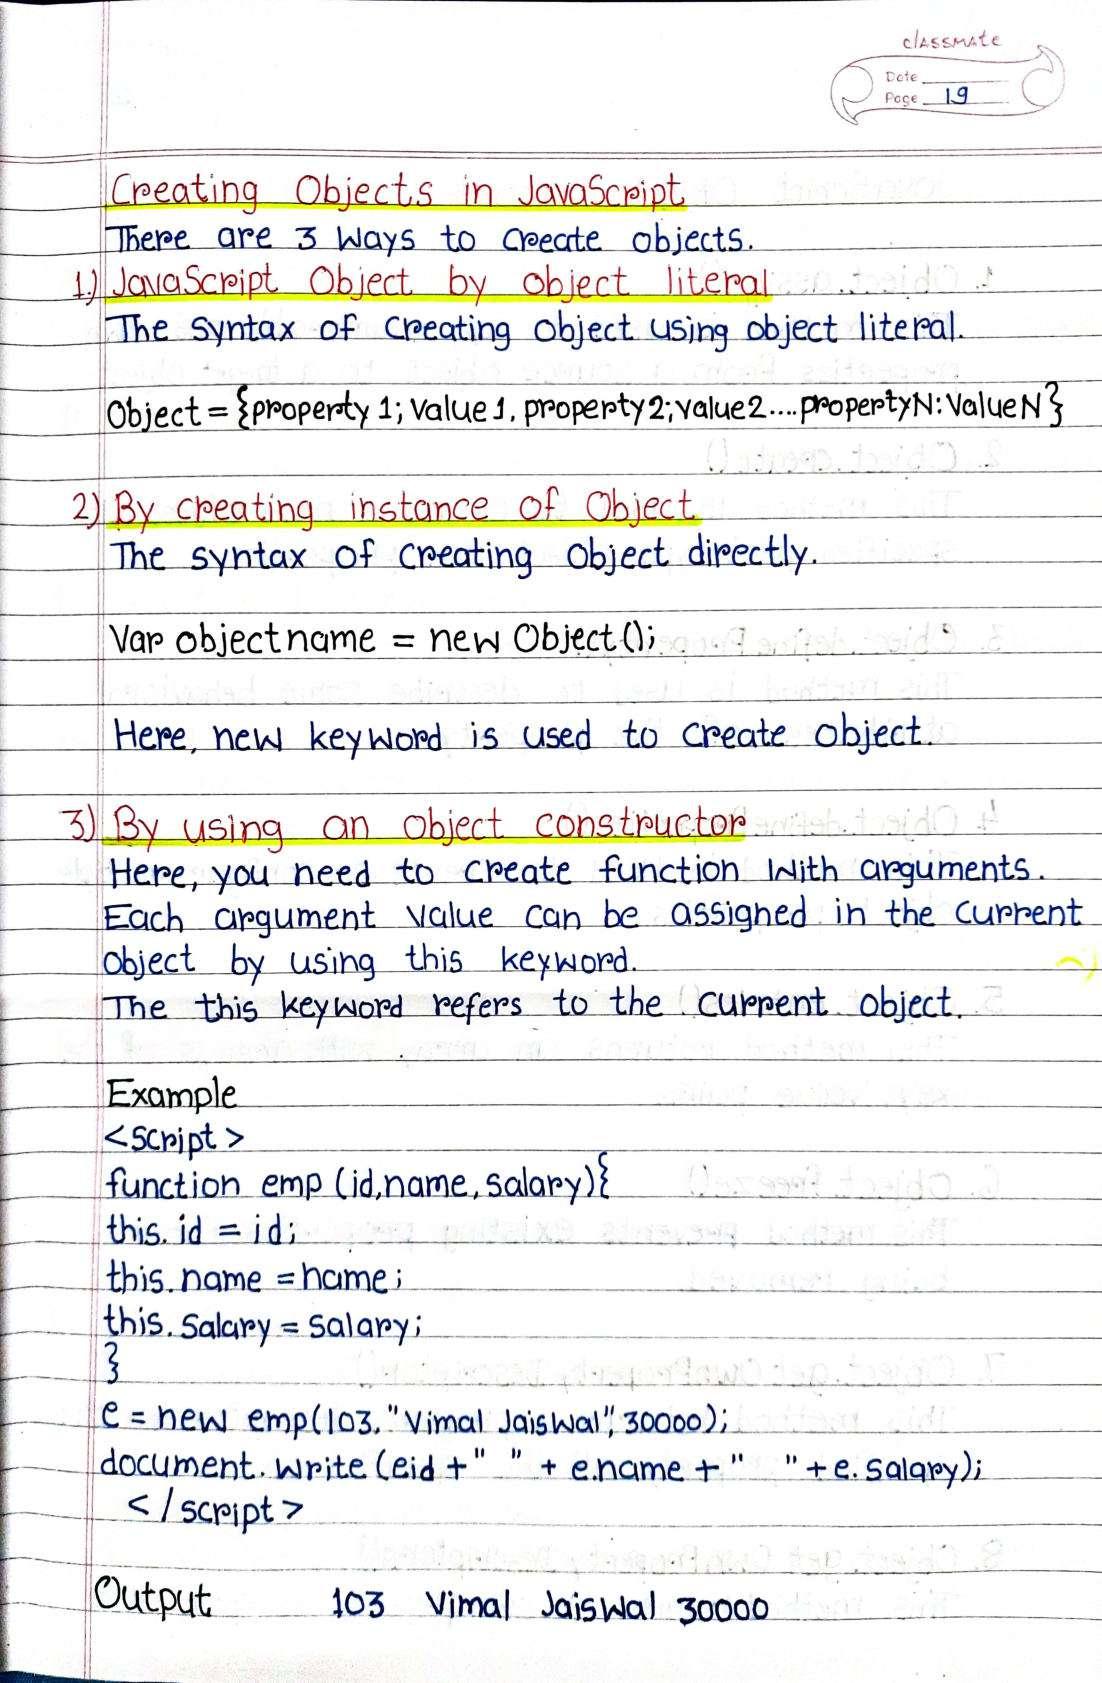 classmate
Date
Page 19
Creating Objects in JavaScript
There are 3 Ways to create objects.
1.) JavaScript Object by object literal
The syntax of creating object using object literal.
Object = {property 1; Value 1, property 2; value 2.... propertyN: ValueN}
2) By creating instance of Object
The syntax of creating object directly.
Var objectname = new Object ();
Here, new keyword is used to create object.
3) By using an object constructor
Here, you need to create function with arguments.
Each argument value can be assigned in the current
object by using this keyword.
The this keyword refers to the current object.
Example
<script>
function emp (id,name, salary){
this. id = id;
this. name = name;
this. salary = salary;
}
e = new emp(103, "Vimal Jaiswal", 30000);
document. write (eid + " " + e.name + " " + e. salary);
</script>
Output 103 Vimal Jaiswal 30000